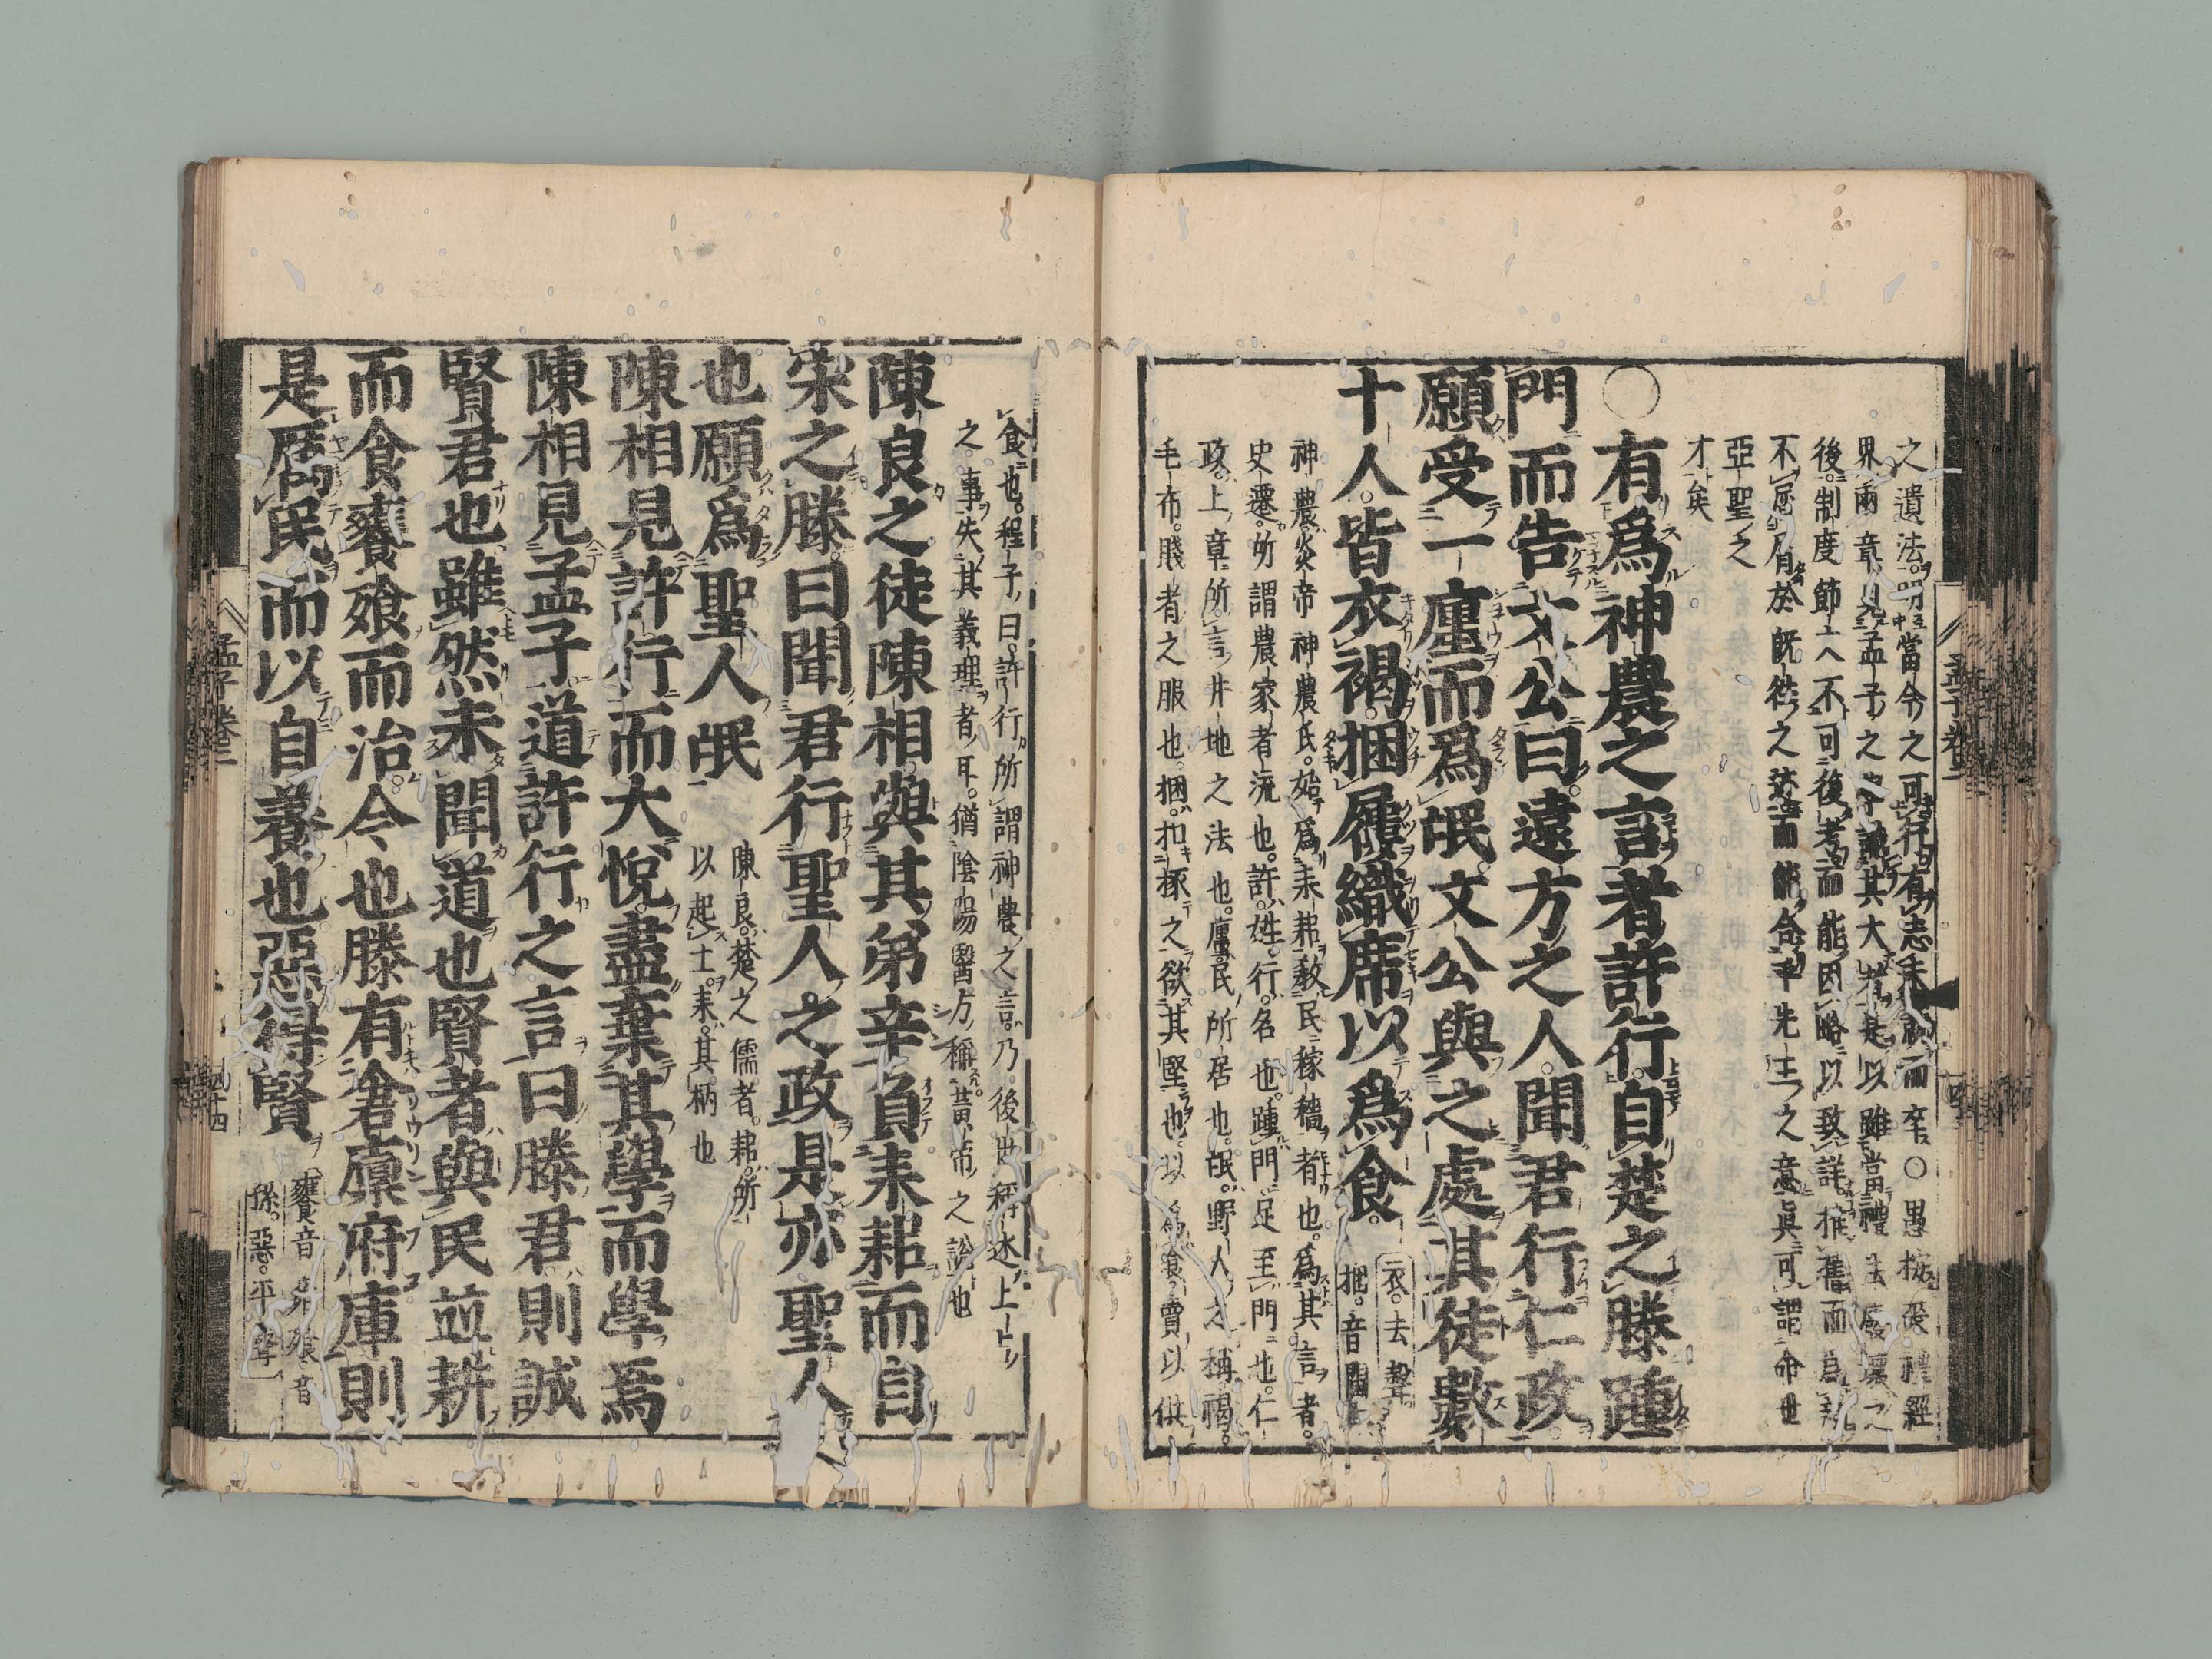 之遺法明當今之可行有志未就而卒○愚按喪禮經
界兩章見孟子之學識其大者是以雖當禮法廢壞之
後制度節文不可復考而能因略以致詳推舊而爲新
不屑屑於既往之迹而能合乎先王之意眞可謂命世
亞聖之
才矣
○有爲神農之言者許行自楚之滕踵
門而告文公曰遠方之人聞君行仁政
願受一廛而爲氓文公與之處其徒數
十人皆衣褐捆屨織席以爲食
衣去聲
捆音閫
神農炎帝神農氏始爲耒耜敎民稼穡者也爲其言者
史遷所謂農家者流也許姓行名也踵門足至門也仁
政上章所言井地之法也廛民所居也氓野人之稱褐
毛布賤者之服也捆扣㧻之欲其堅也以爲食賣以供
食也程子曰許行所謂神農之言乃後世稱述上古
之事失其義理者耳猶陰陽醫方稱黃帝之說也
陳良之徒陳相與其弟辛負耒耜而自
宋之滕曰聞君行聖人之政是亦聖人
也願爲聖人氓
陳良楚之儒者耜所
以起土耒其柄也
陳相見許行而大悅盡棄其學而學焉
陳相見孟子道許行之言曰滕君則誠
賢君也雖然未聞道也賢者與民並耕
而食饔飧而治今也滕有倉廩府庫則
是厲民而以自養也惡得賢
饔音雍飧音
孫惡平聲
孟子卷三
四十四